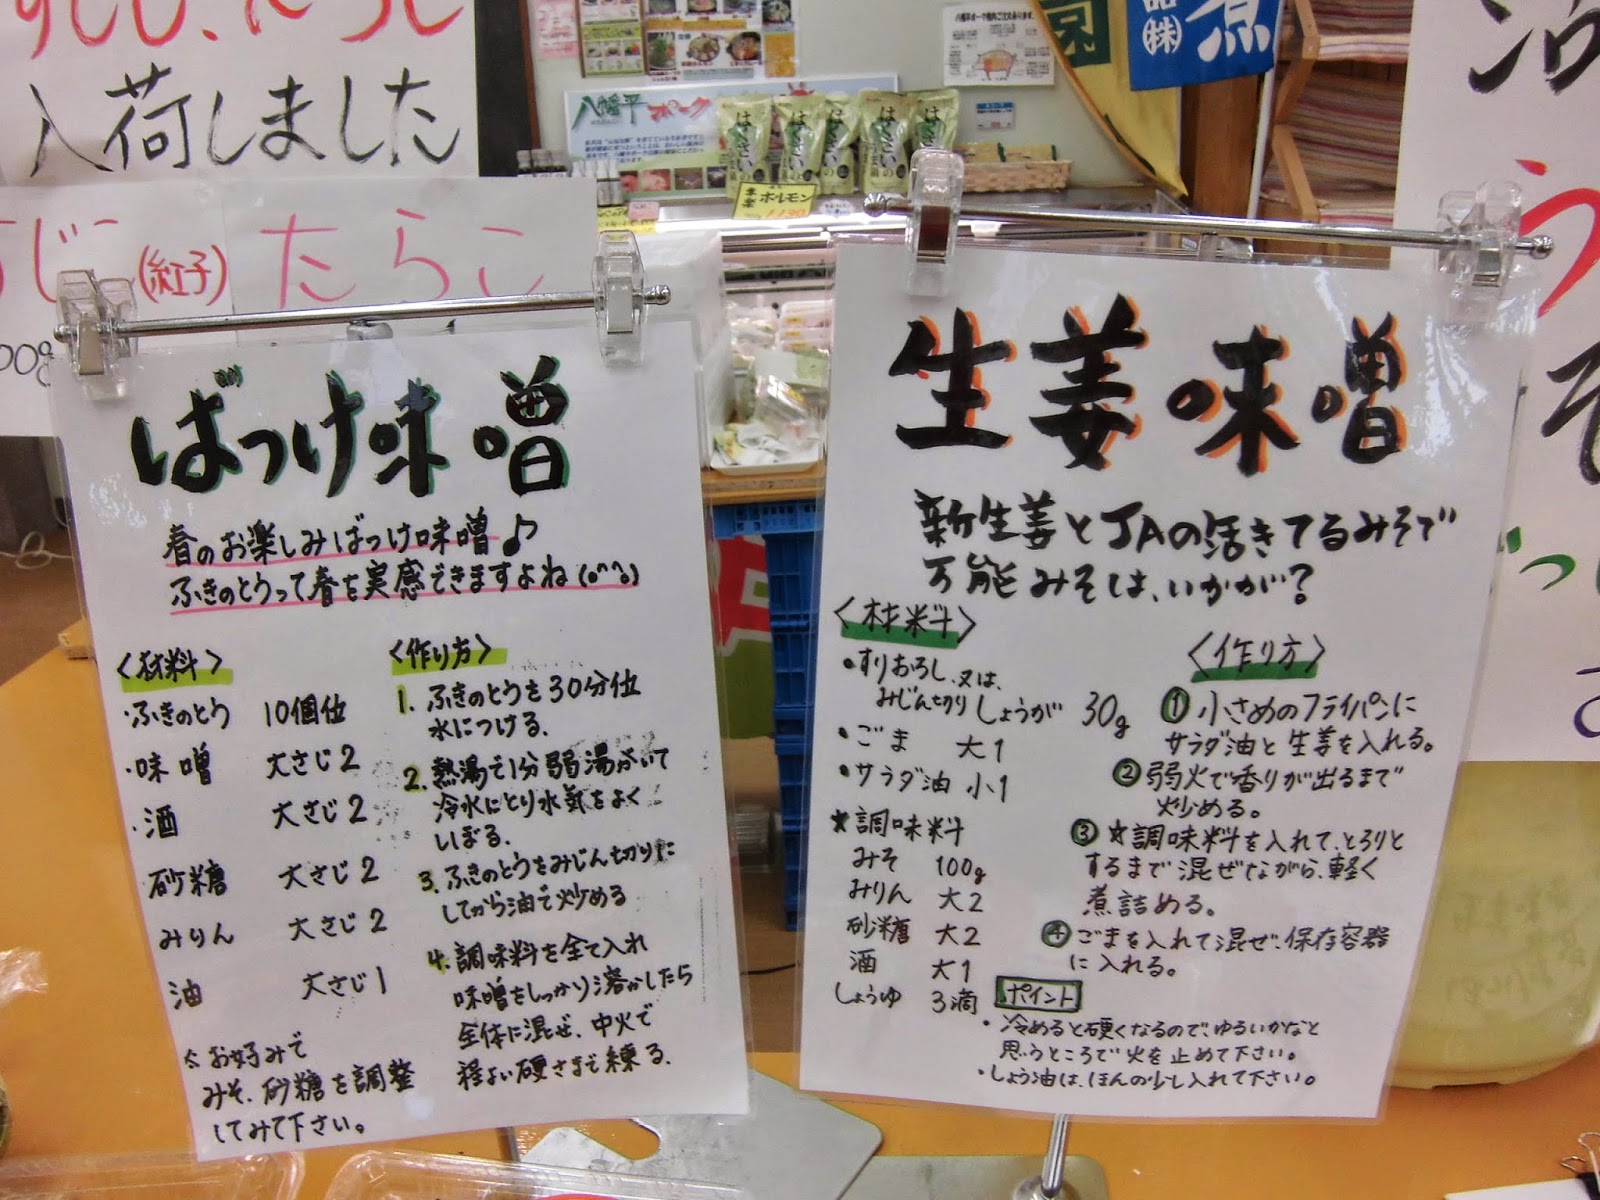 入荷しました
(紅子)
たらこ
00g
八幡平
ポーク
はくさいの
はくさいの
ホルモン
ばっけ味噌
春のお楽しみばっけ味噌♪
ふきのとうって春を実感できますよね(o^^o)
〈材料〉
・ふきのとう 10個位
・味噌 大さじ2
・酒 大さじ2
砂糖 大さじ2
みりん 大さじ2
油 大さじ1
お好みで
みそ、砂糖を調整
してみて下さい。
〈作り方〉
1. ふきのとうを30分位
水につける.
2. 熱湯で1分弱湯がいて
冷水にとり水気をよく
しぼる.
3. ふきのとうをみじん切りに
してから油で炒める
4. 調味料を全て入れ
味噌をしっかり溶かしたら
全体に混ぜ、中火で
程よい硬さまで練る.
生姜味噌
新生姜とJAの活きてるみそで
万能みそは、いかがが?
〈材料〉
・すりおろし、又は、
みじん切りしょうが 30g
・ごま 大1
・サラダ油 小1
★調味料
みそ 100g
みりん 大2
砂糖 大2
酒 大1
しょうゆ 3滴
〈作り方〉
① 小さめのフライパンに
サラダ油と生姜を入れる。
② 弱火で香りが出るまで
炒める。
③ ☆調味料を入れて、とろりと
するまで混ぜながら、軽く
煮詰める。
④ ごまを入れて混ぜ、保存容器
に入れる。
ポイント
・冷めると硬くなるので、ゆるいかなと
思うところで火を止めて下さい。
・しょう油は、ほんの少し入れて下さい。